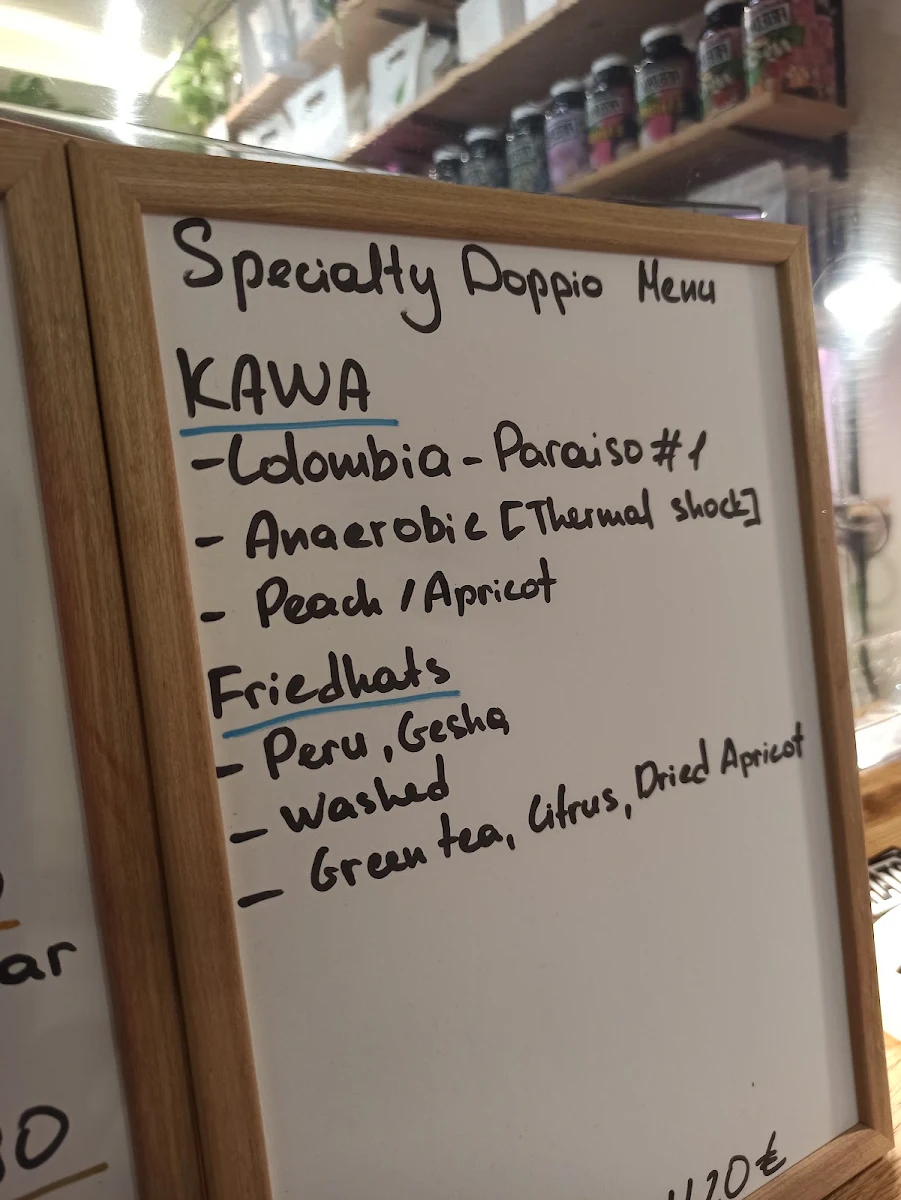 Specialty Doppio Menu
KAWA
- Colombia - Paraiso #1
- Anaerobic [Thermal shock]
- Peach / Apricot
Friedhats
- Peru, Gesha
- Washed
- Green tea, Citrus, Dried Apricot
ar